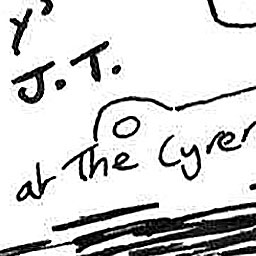 y's
J.T.
at The Cyrer